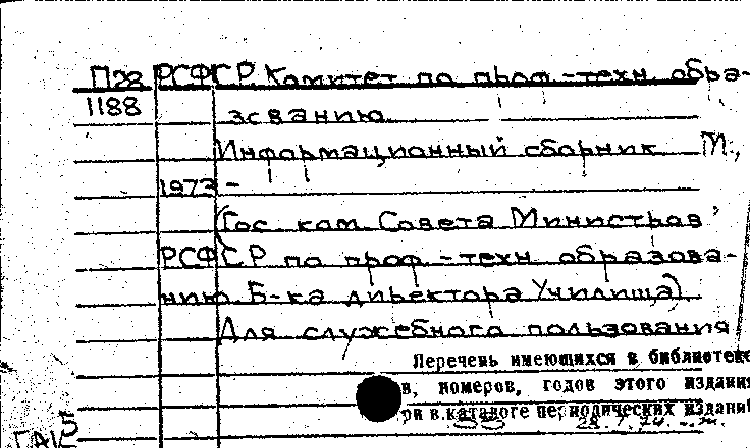 П28 РСФСР. Комитет по проф.-техн. обра-
1188 зованию.
Информационный сборник. М.,
1973 -
(Гос. ком. Совета Министров
РСФСР по проф.-техн. образова-
нию. Б-ка директора Училища)
Для служебного пользования
Перечень имеющихся в библиотеке
в, номеров, годов этого издания
ри в каталоге периодических изданий